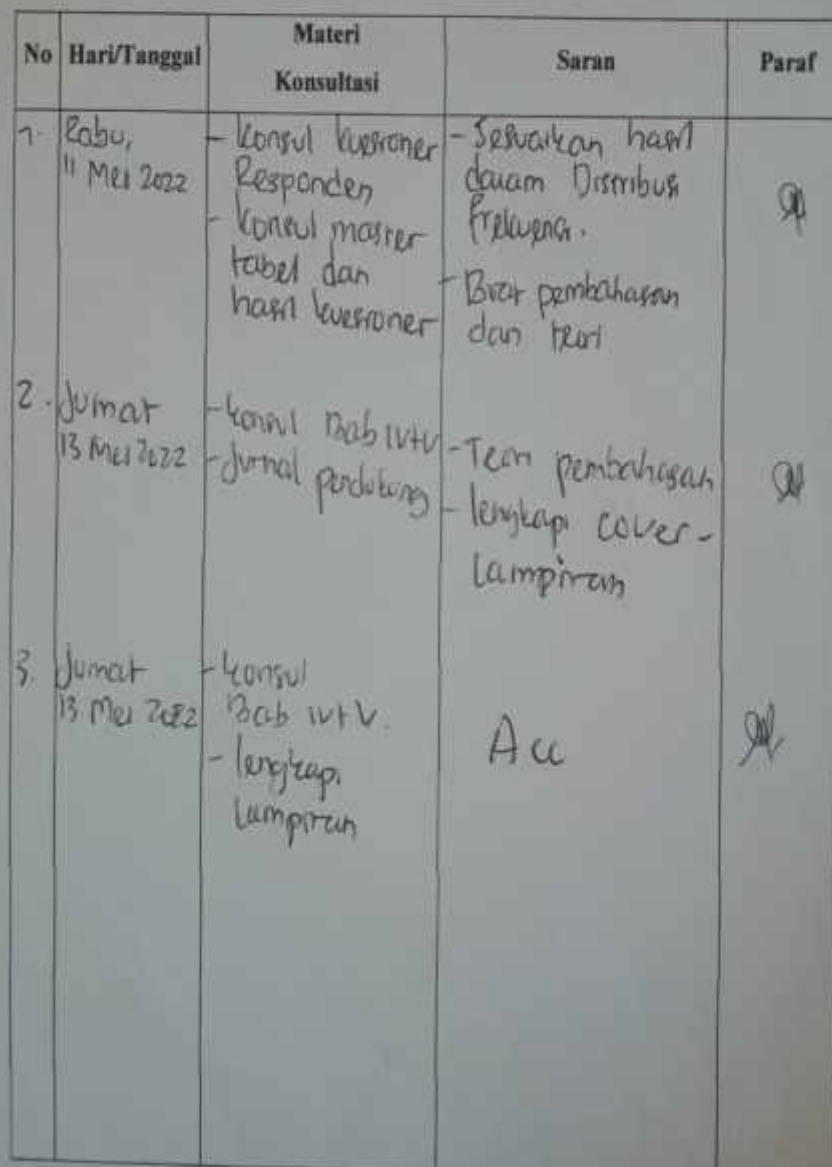 No Hari/Tanggal Materi Konsultasi Saran Paraf
1. Rabu,
11 Mei 2022
- Konsul kuesioner
Responden
- Konsul master
tabel dan
hasil kuesioner
- Sesuaikan hasil
dalam Distribusi
frekuensi.
- Buat pembahasan
dan teori
2. Jumat
13 Mei 2022
- Konsul Bab IV+V
- Jurnal pendukung
- Teori pembahasan
- lengkapi cover -
Lampiran
3. Jumat
13 Mei 2022
- Konsul
Bab IV+V.
- lengkapi
Lampiran
Acc